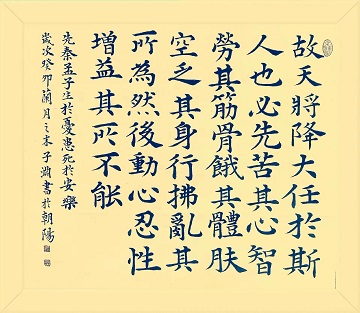 故天將降大任於斯
人也必先苦其心智
勞其筋骨餓其體膚
空乏其身行拂亂其
所為然後動心忍性
增益其所不能
先秦孟子生於憂患死於安樂
歲次癸卯蘭月之末子書於朝陽